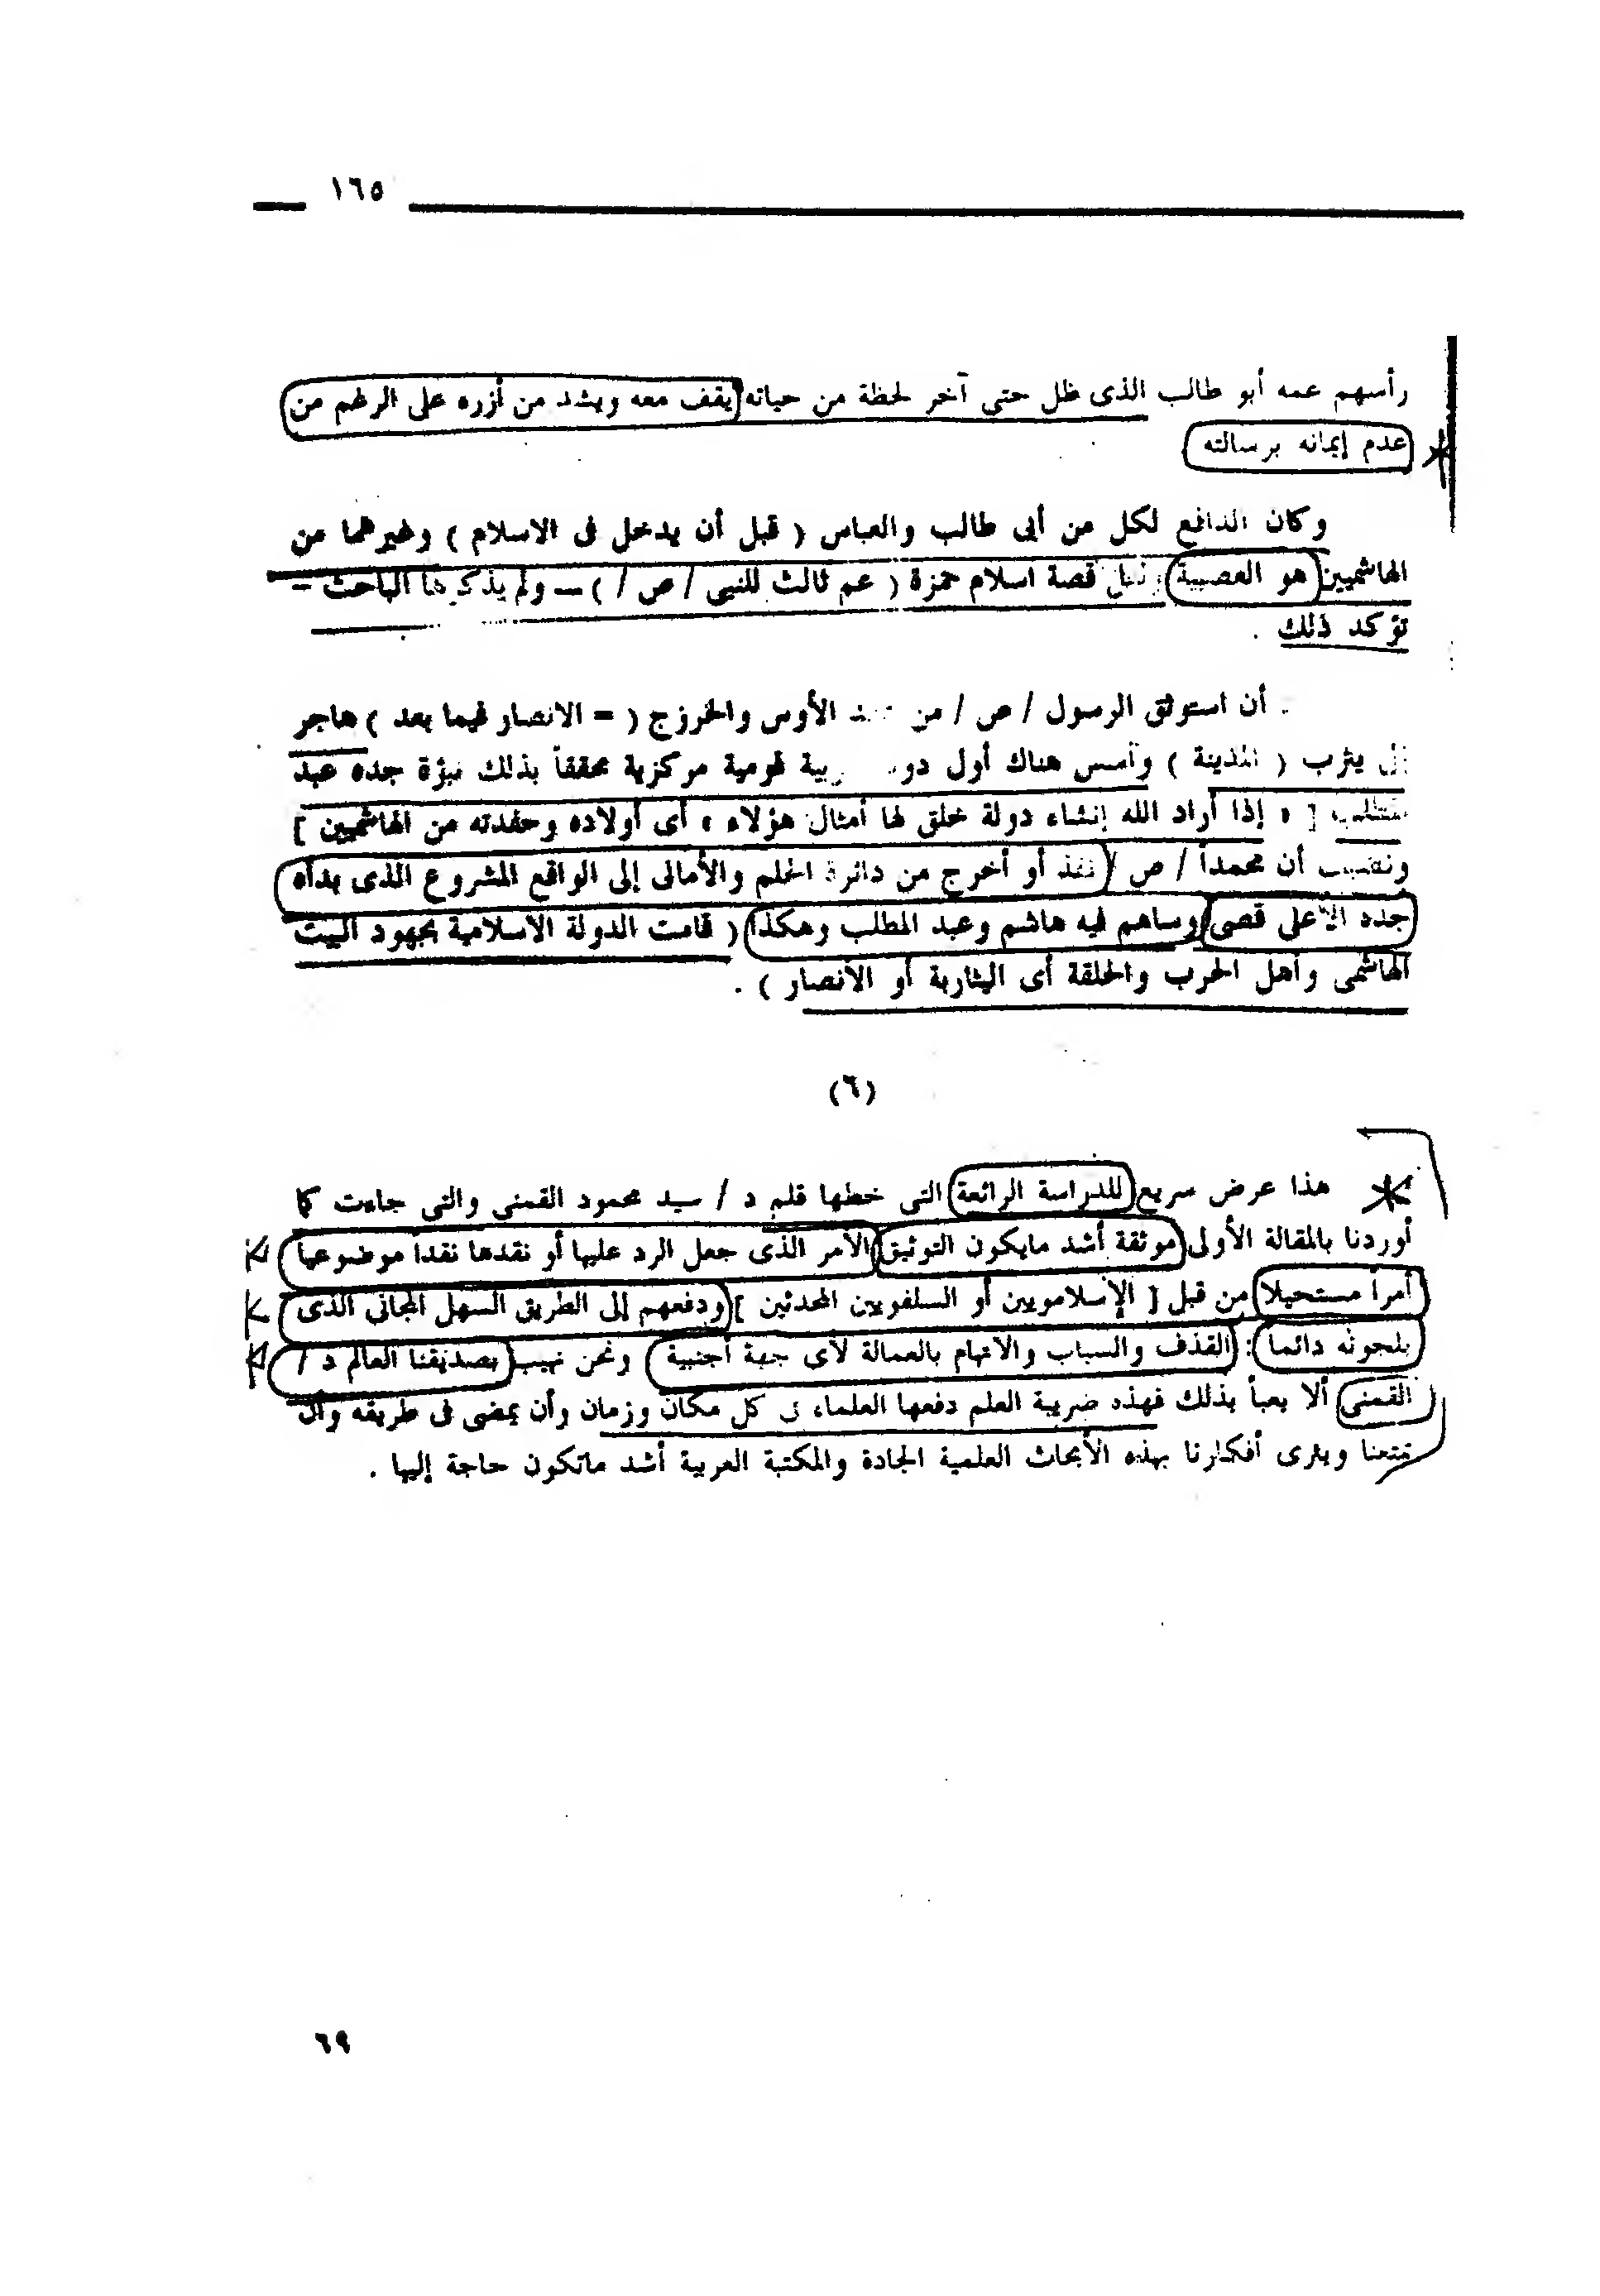 ١٦٥
رأسهم عمه أبو طالب الذى ظل حتى آخر لحظة من حياته يقف معه ويشد من أزره على الرغم من
عدم إيمانه برسالته
وكان الدافع لكل من أبى طالب والعباس ( قبل أن يدخل فى الاسلام ) وغيرهما من
الهاشميين هو العصبية قصة اسلام حمزة ( عم ثالث للنبى / ص / ) – ولم يذكرها الباحث –
تؤكد ذلك .
أن استوثق الرسول / ص / من الأوس والخزرج ( = الانصار فيما بعد ) هاجر
يثرب ( المدينة ) وأسس هناك أول قومية مركزية محققاً بذلك نبؤة جده عبد
[ « إذا أراد الله إنشاء دولة خلق لها أمثال هؤلاء » أى أولاده وحفدته من الهاشميين ]
أن محمداً / ص / نفذ أو أخرج من دائرة الحلم والأمالى إلى الواقع المشروع الذى بدأه
جده الأعلى قصى وساهم فيه هاشم وعبد المطلب وهكذا ( قامت الدولة الاسلامية بجهود البيت
الهاشمى وأهل الحرب والحلقة أى اليثاربة أو الأنصار ) .
(٦)
هذا عرض سريع للدراسة الرائعة التى خطها قلم د / سيد محمود القمنى والتى جاءت كما
أوردنا بالمقالة الأولى موثقة أشد مايكون التوثيق الأمر الذى جعل الرد عليها أو نقدها نقداً موضوعياً
أمراً مستحيلا من قبل [ الإسلامويين أو السلفويين المحدثين ] ودفعهم إلى الطريق السهل المجانى الذى
يلجونه دائما : القذف والسباب والاتهام بالعمالة لأى جهة أجنبية ونحن نهيب بصديقنا العالم د /
القمنى ألا يعبأ بذلك فهذه ضريبة العلم دفعها العلماء فى كل مكان وزمان وأن يمضى فى طريقه وأن
يمتعنا ويثرى أفكارنا بهذه الأبحاث العلمية الجادة والمكتبة العربية أشد ماتكون حاجة إليها .
٦٩